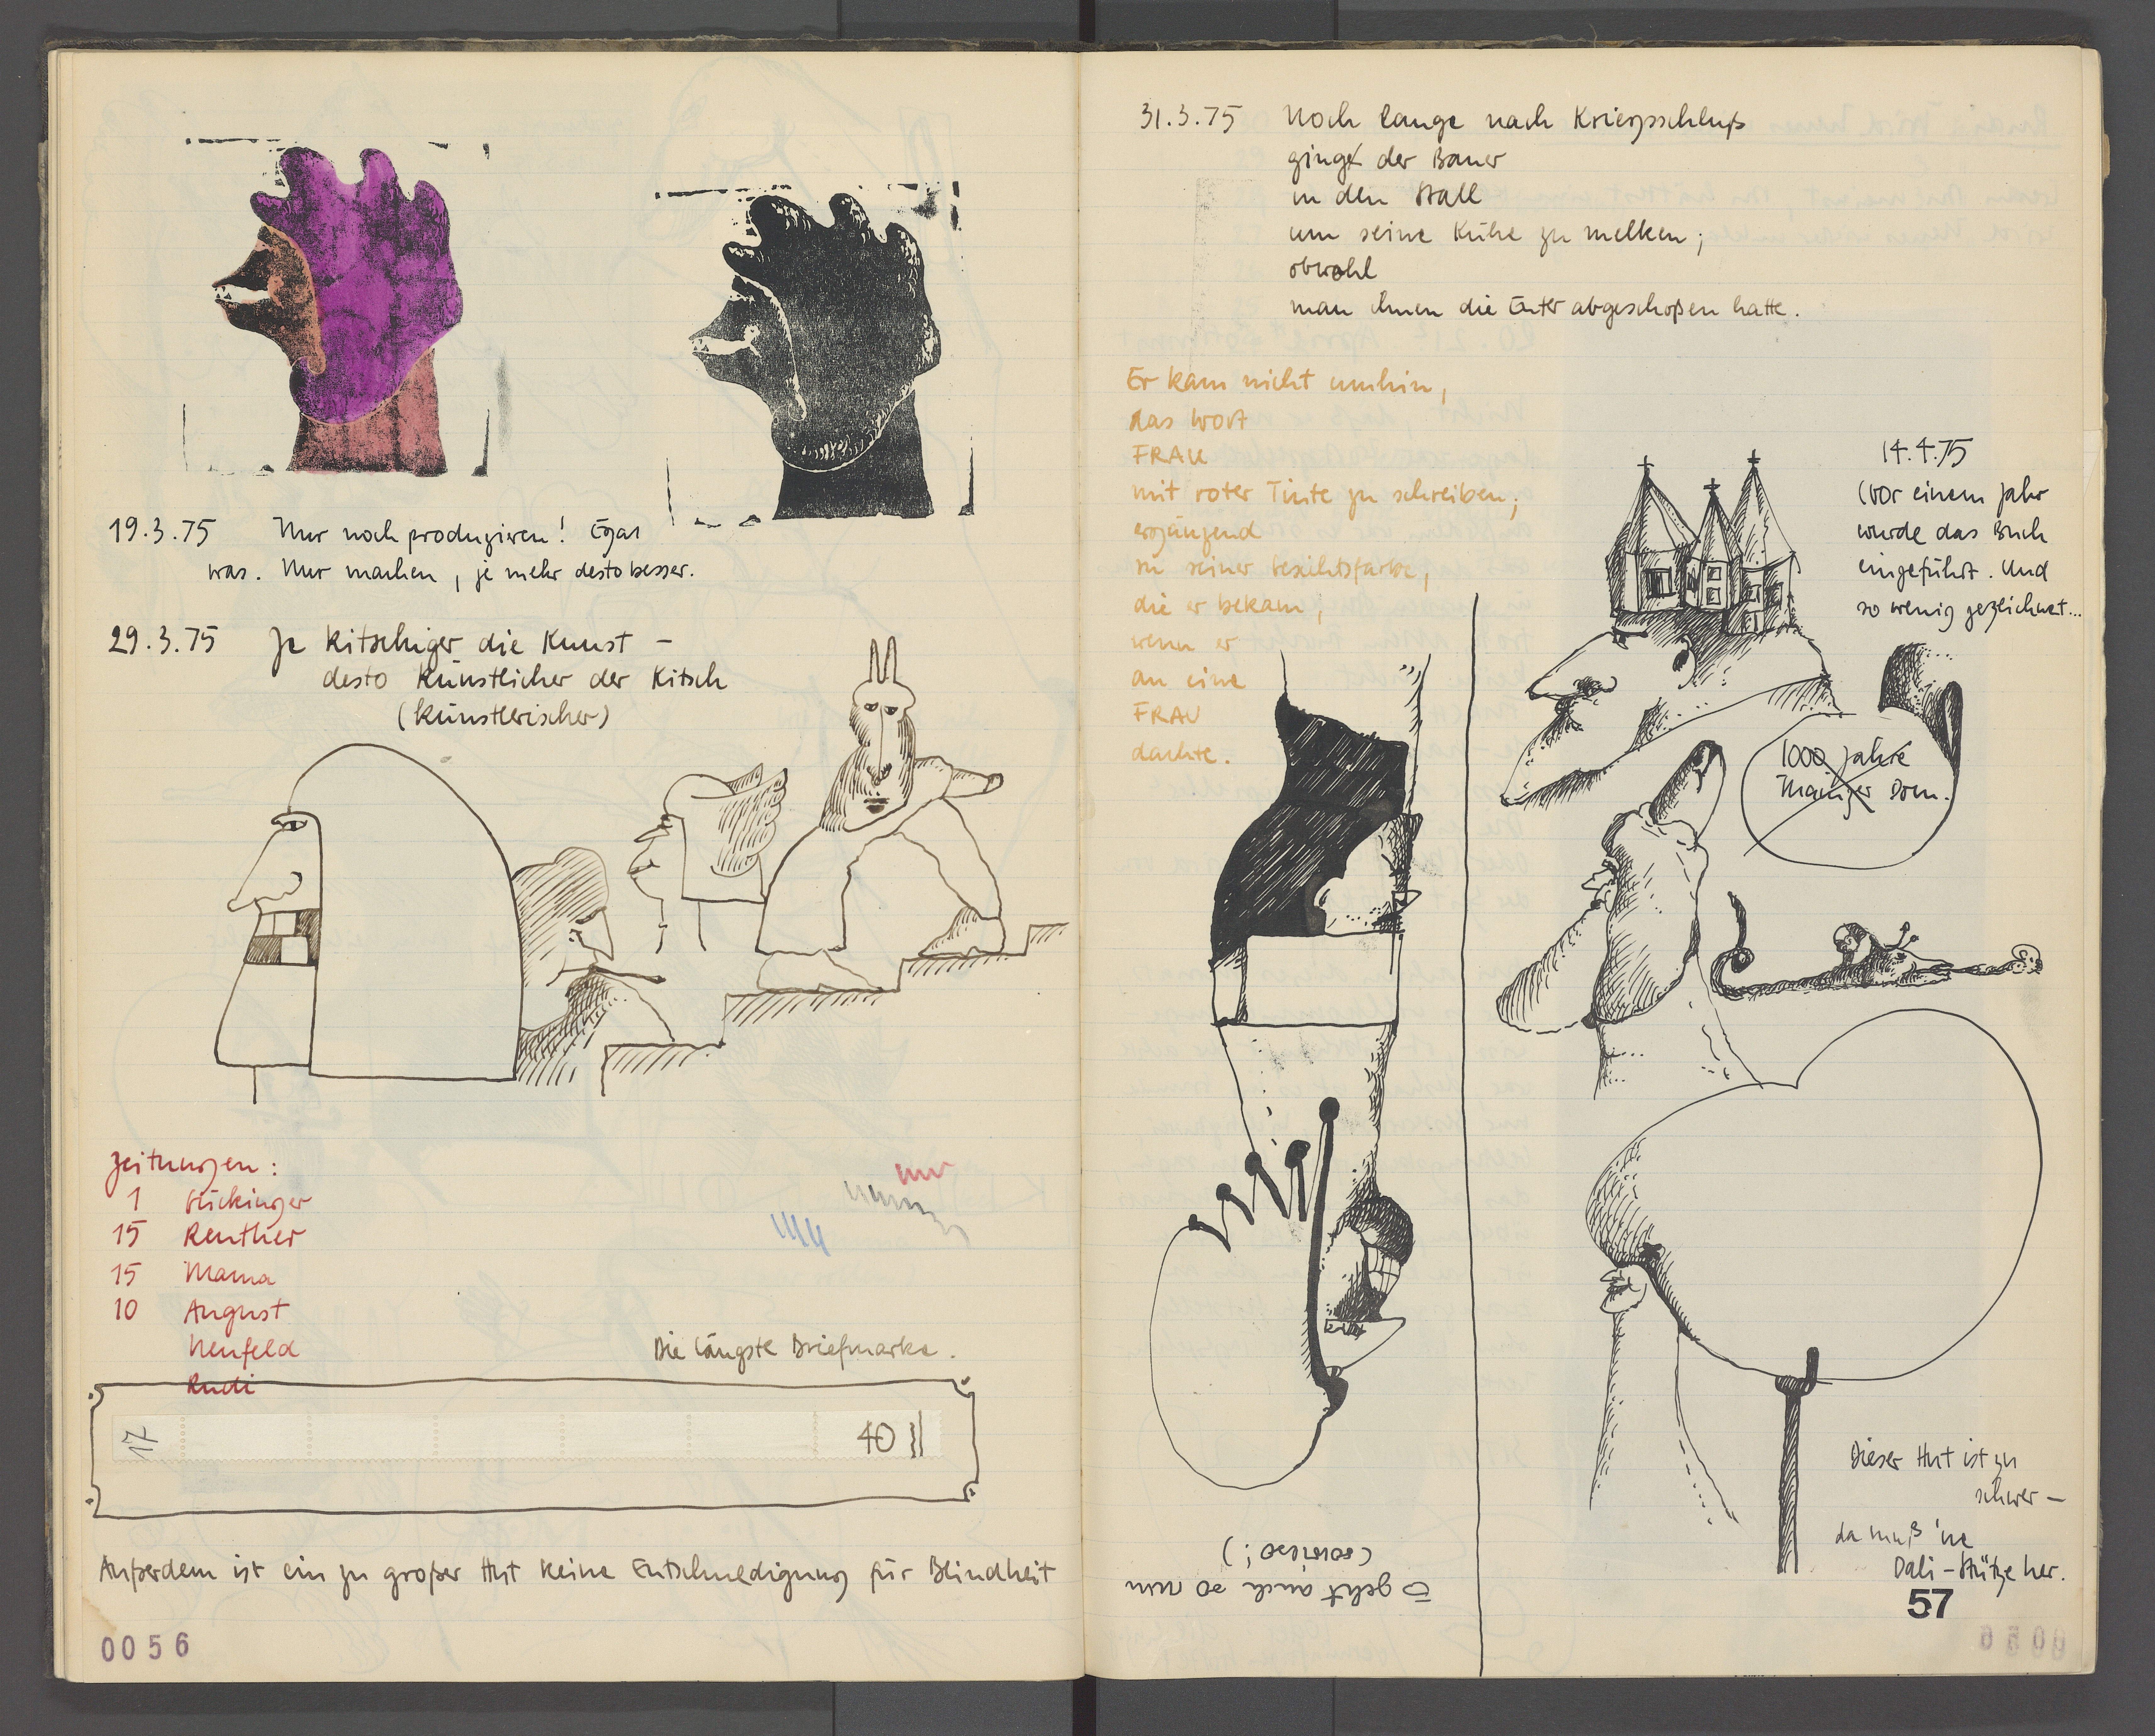 19.3.75 Nur noch produzieren! Egal
was. Nur machen, je mehr desto besser.
29.3.75 Je kitschiger die Kunst –
desto künstlicher der Kitsch
(künstlerischer)
Zeitungen:
1 Gückinger
15 Reuther
15 Mama
10 August
Neufeld
Rudi
Die längste Briefmarke.
17 40
Außerdem ist ein zu großer Hut keine Entschuldigung für Blindheit
0056
31.3.75 Noch lange nach Kriegsschluß
ging der Bauer
in den Stall
um seine Kühe zu melken;
obwohl
man ihnen die Euter abgeschoßen hatte.
Er kam nicht umhin,
das Wort
FRAU
mit roter Tinte zu schreiben;
ergänzend
zu seiner Gesichtsfarbe,
die er bekam,
wenn er
an eine
FRAU
dachte.
14.4.75
(Vor einem Jahr
wurde das Buch
eingeführt. Und
so wenig gezeichnet...
1000 Jahre
Mainzer Dom.
S geht auch so rum
(sowieso!)
Dieser Hut ist zu
schwer –
da muß 'ne
Dali-Stütze her.
57